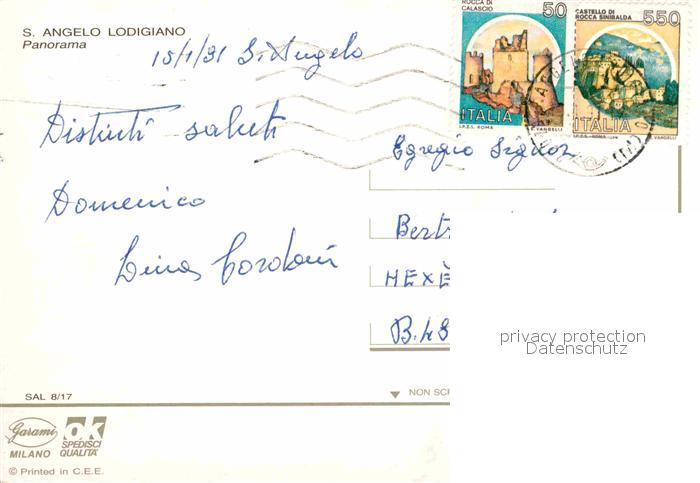 S. ANGELO LODIGIANO
Panorama
15/1/91 S. Angelo
Distinti saluti
Domenico
ROCCA DI
CALASCIO
50
ITALIA
I.P.Z.S. ROMA
E. VANGELLI
CASTELLO DI
ROCCA SINIBALDA
550
ITALIA
I.P.Z.S. ROMA
VANGELLI
Egregio Signor
Bert
HEXÈ
B.48
privacy protection
Datenschutz
SAL 8/17
NON SCR
Garami
MILANO
ok
SPEDISCI
QUALITÀ
© Printed in C.E.E.